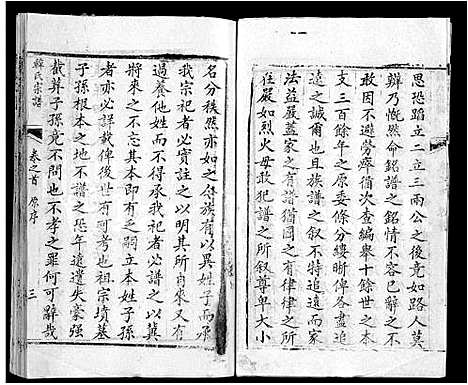 思恐蹈立二立三兩公之後竟如路人莫
辦乃慨然命銘譜之銘情不容已辭之不
敢因不避勞瘁循次查編舉十餘世之本
支三百餘年之原委條分縷晰俾各盡追
遠之誠爾也且族譜之說別昉特近而家
法益嚴蓋家之有譜猶國之有律律之所
在嚴如烈火毋敢犯譜之所叙尊卑大小
名分秩然亦如之但族有以異姓子而承
我宗祀者必實註之以明其所自來又有
過養他姓而不得承我祀者譜之以冀
將來之不忘其本即有乏嗣立本姓子孫
者亦必詳載俾後世有考至祖宗墳墓
子孫根本之地不譜之恐年遠遺失豪强
截葬子孫竟不問也不孝之罪何可辭哉
韓氏宗譜 卷之首 原序 三